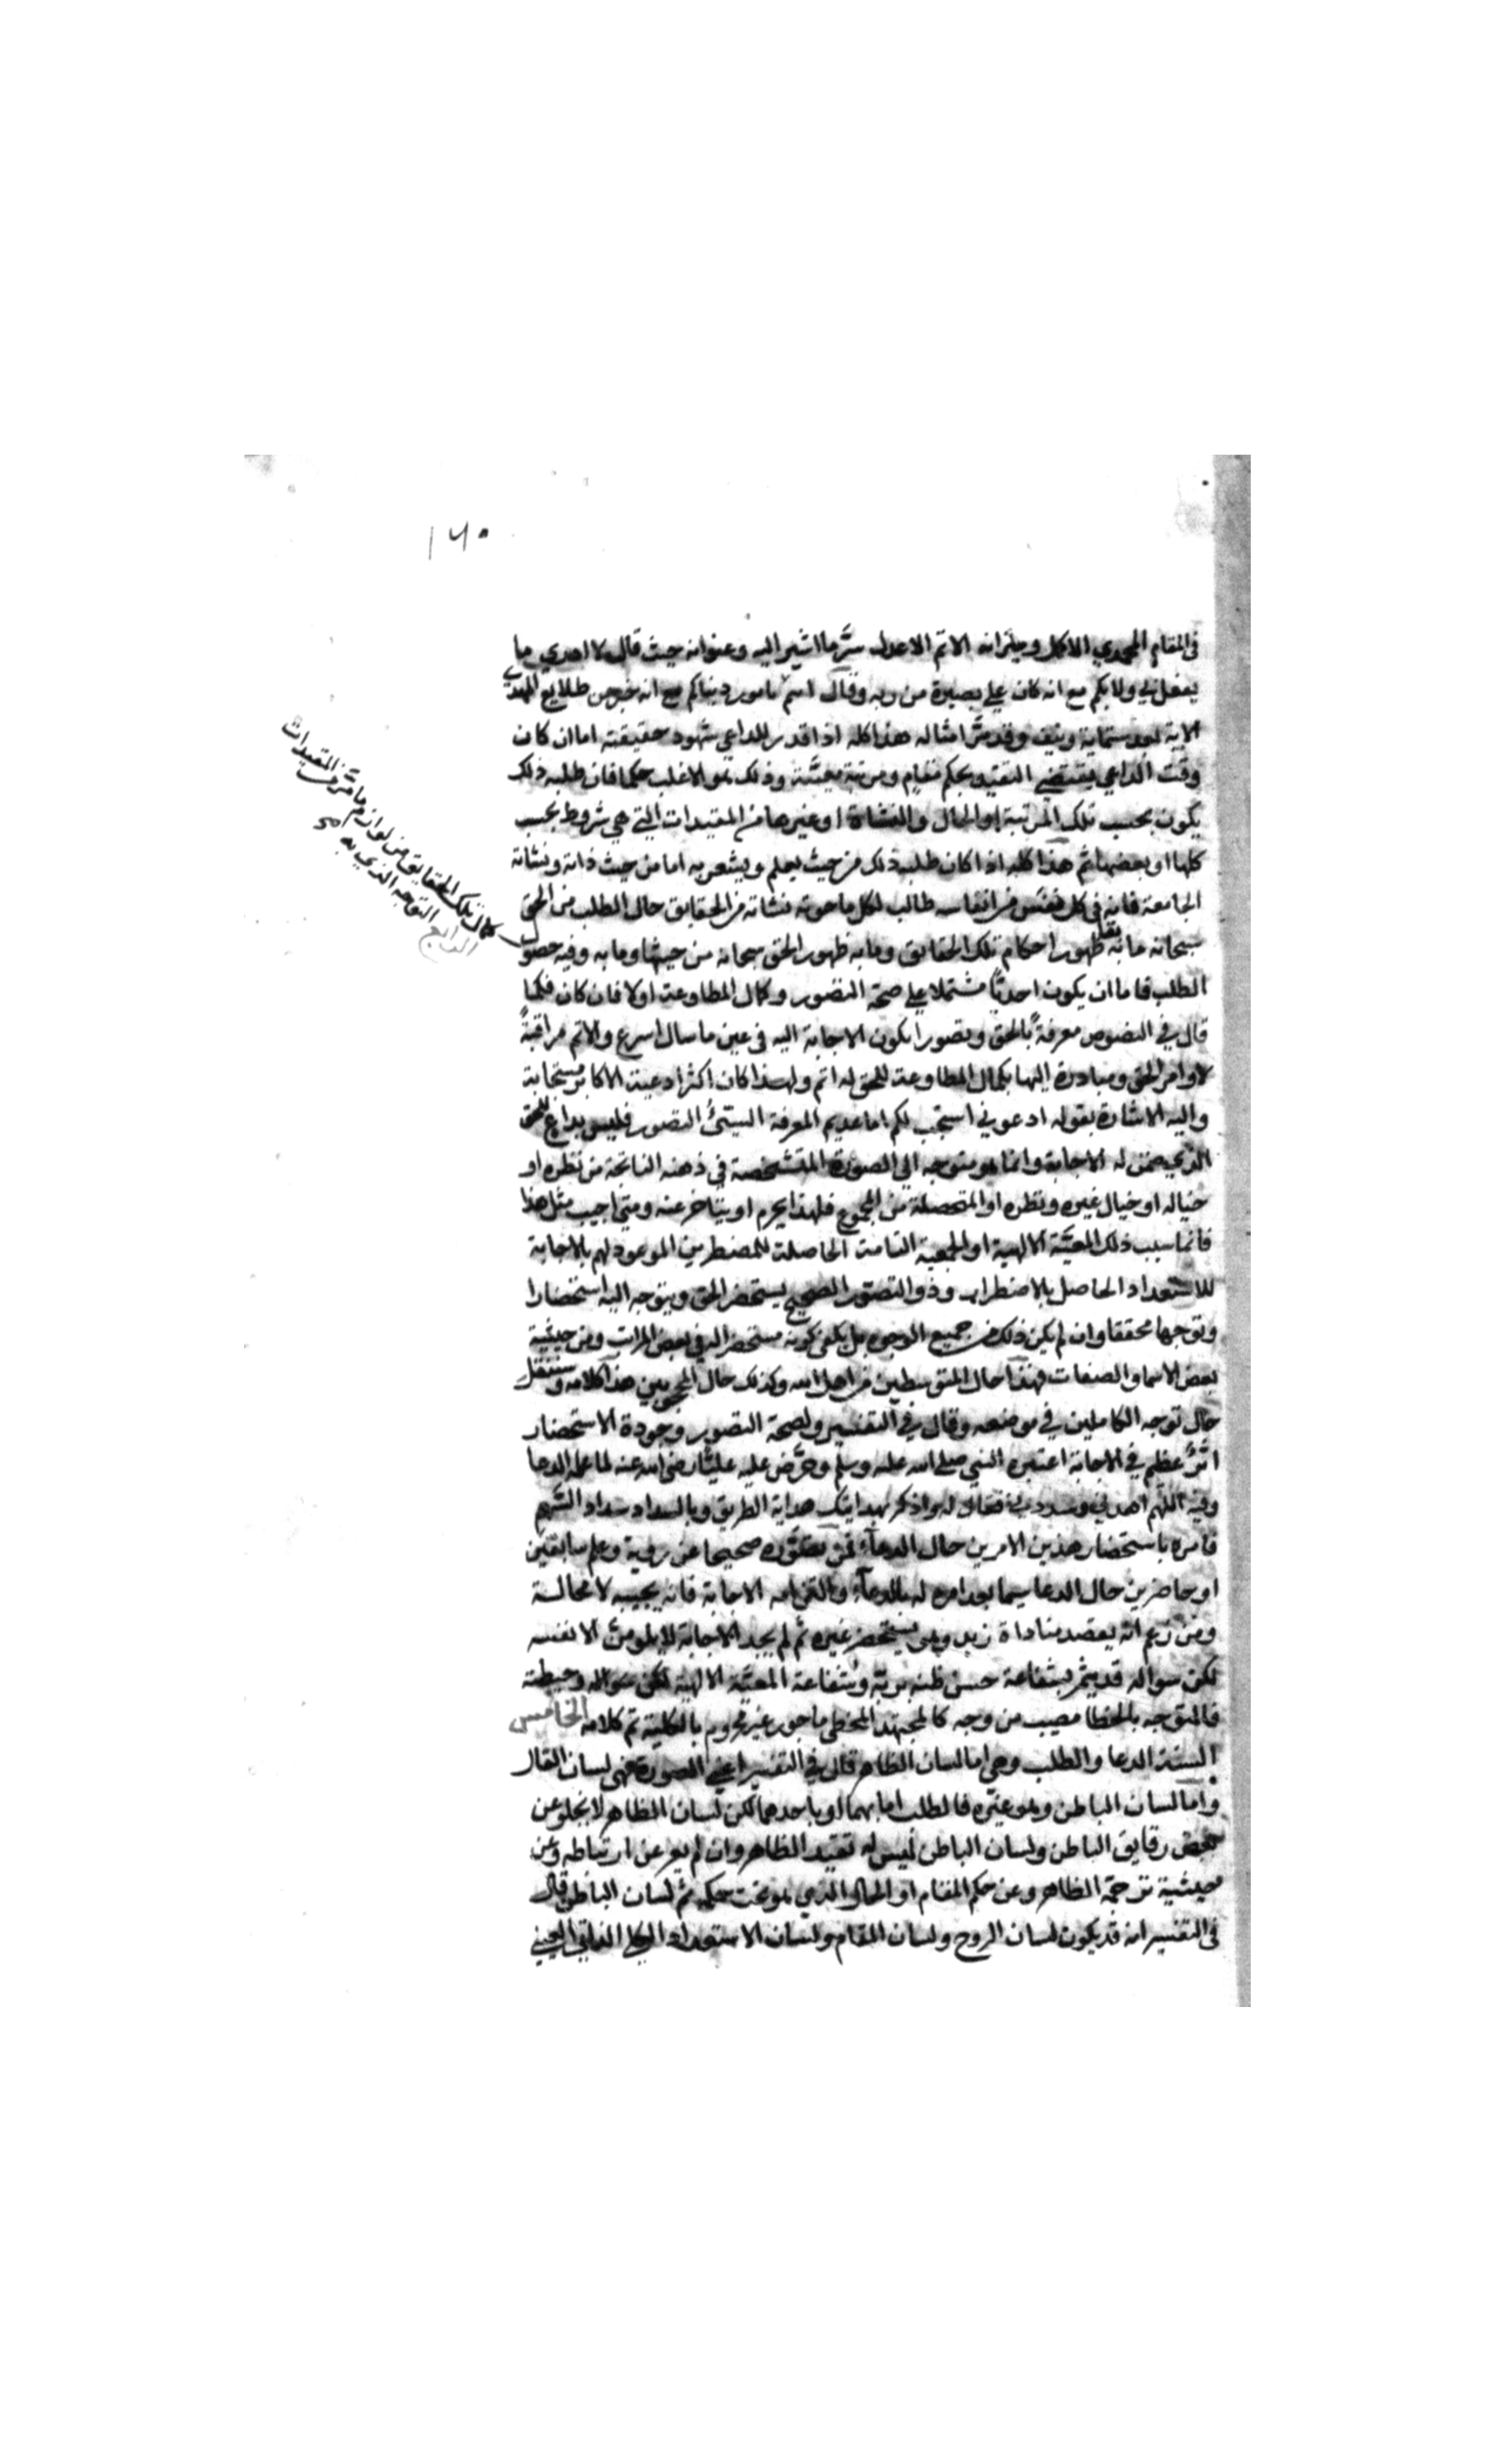 ١٦٠
في المقام المحمدي الاكمل وميزانه الاتم الاعدل سرّ ما اشير اليه وعنوانه حيث قال لا ادري ما
يفعل بي ولا بكم مع انه كان علي بصيرة من ربه وقال انتم بامور دنياكم مع انه خبر عن طلايع المهدي
الاتية بعد ستماية ونيف وقد مرّ امثاله هذا كله اذا قدر للداعي شهود حقيقته اما ان كان
وقت الداعي يقتضي التقيد بحكم مقام ومرتبة معيّنة وذلك هو الاغلب حكما فان طلبه ذلك
يكون بحسب تلك المرتبة او الحال والنشاة او غيرها من المقيدات التي هي شروط بحسب
كلها او بعضها ثم هذا كله اذا كان طلبه ذلك من حيث يعلم ويشعر به اما من حيث ذاته ونشاته
الجامعة فانه في كل نفس من انفاسه طالب لكل ما حوته نشاته من الحقايق حال الطلب من الحق
سبحانه ما به ظهور احكام تلك الحقايق وما به ظهور الحق سبحانه من حيثها وما به وفيه حصول
كمال تلك الحقايق من لوازم ما مرّ من المقيدات
الرابع التوجه الذي به
الطلب فاما ان يكون احديّا مشتملا علي صحة التصور وكمال المطاوعة او لا فان كان فكما
قال في النصوص معرفةً بالحق وتصورا يكون الاجابة اليه في عين ما سال اسرع والاتم مراقبةً
لاوامر الحق ومبادرة اليها بكمال المطاوعة للحق له اتم ولهذا كان اكثر ادعية الاكابر مستجابة
واليه الاشارة بقوله ادعوني استجب لكم اما عديم المعرفة السيّئ التصور فليس بداع للحق
الذي ضمن له الاجابة وانما هو متوجه الي الصورة المتشخصة في ذهنه الناتجة من نظره او
خياله او خيال غيره ونظره او المتحصلة من المجموع فلهذا يحرم او يتاخر عنه ومتي اجيب مثل هذا
فانما سبب ذلك المعيّة الالهية او الجمعية التامة الحاصلة للمضطرين الموعود لهم بالاجابة
للاستعداد الحاصل بالاضطرار وذو التصوّر الصحيح يستحضر الحق ويتوجه اليه استحضارا
وتوجها محققا وان لم يكن ذلك من جميع الوجوه بل يكفي كونه مستحضرا له في بعض المراتب ومن حيثية
بعض الاسما والصفات فهذا حال المتوسطين من اهل الله وكذلك حال المحجوبين هذا كلامه وسننقل
حال توجه الكاملين في موضعه وقال في التفسير ولصحة التصور وجودة الاستحضار
اثرٌ عظيم في الاجابة اعتبره النبي صلي الله عليه وسلم وحرّض عليه عليّا رضي الله عنه لما علمه الدعا
وفيه اللهم اهدني وسددني فقال له واذكر بهدايتك هداية الطريق وبالسداد سداد السهم
فامره باستحضار هذين الامرين حال الدعاء فمن تصوّره صحيحا عن روية وعلم سابقين
او حاضرين حال الدعا سيما بعد امره له بالدعاء والتزامه الاجابة فانه يجيبه لا محالة
ومن زعم انه يقصد مناداة زيد وهو يستحضر غيره ثم لم يجد الاجابة فلا يلومنّ الا نفسه
لكن سواله قد يثمر بشفاعة حسن ظنه بربّه وشفاعة المعيّة الالهية لكن سواله وحيطته
فالمتوجه بالخطا مصيب من وجه كالمجتهد المخطي ماجور غير محروم بالكلية تم كلامه الخامس
السنة الدعا والطلب وهي اما لسان الظاهر قال في التفسير اعني الصورة فهي لسان القال
واما لسان الباطن وهو غيره فالطلب اما بهما او باحدهما لكن لسان الظاهر لا يخلو عن
بعض رقايق الباطن ولسان الباطن ليس له تقيد الظاهر وان لم يعر عن ارتباطه وعن
حيثية ترجمة الظاهر وعن حكم المقام او الحال الذي هو تحت حكمه ثم لسان الباطن قال
في التفسير انه قد يكون لسان الروح ولسان المقام ولسان الاستعداد الكلي الذاتي العيني